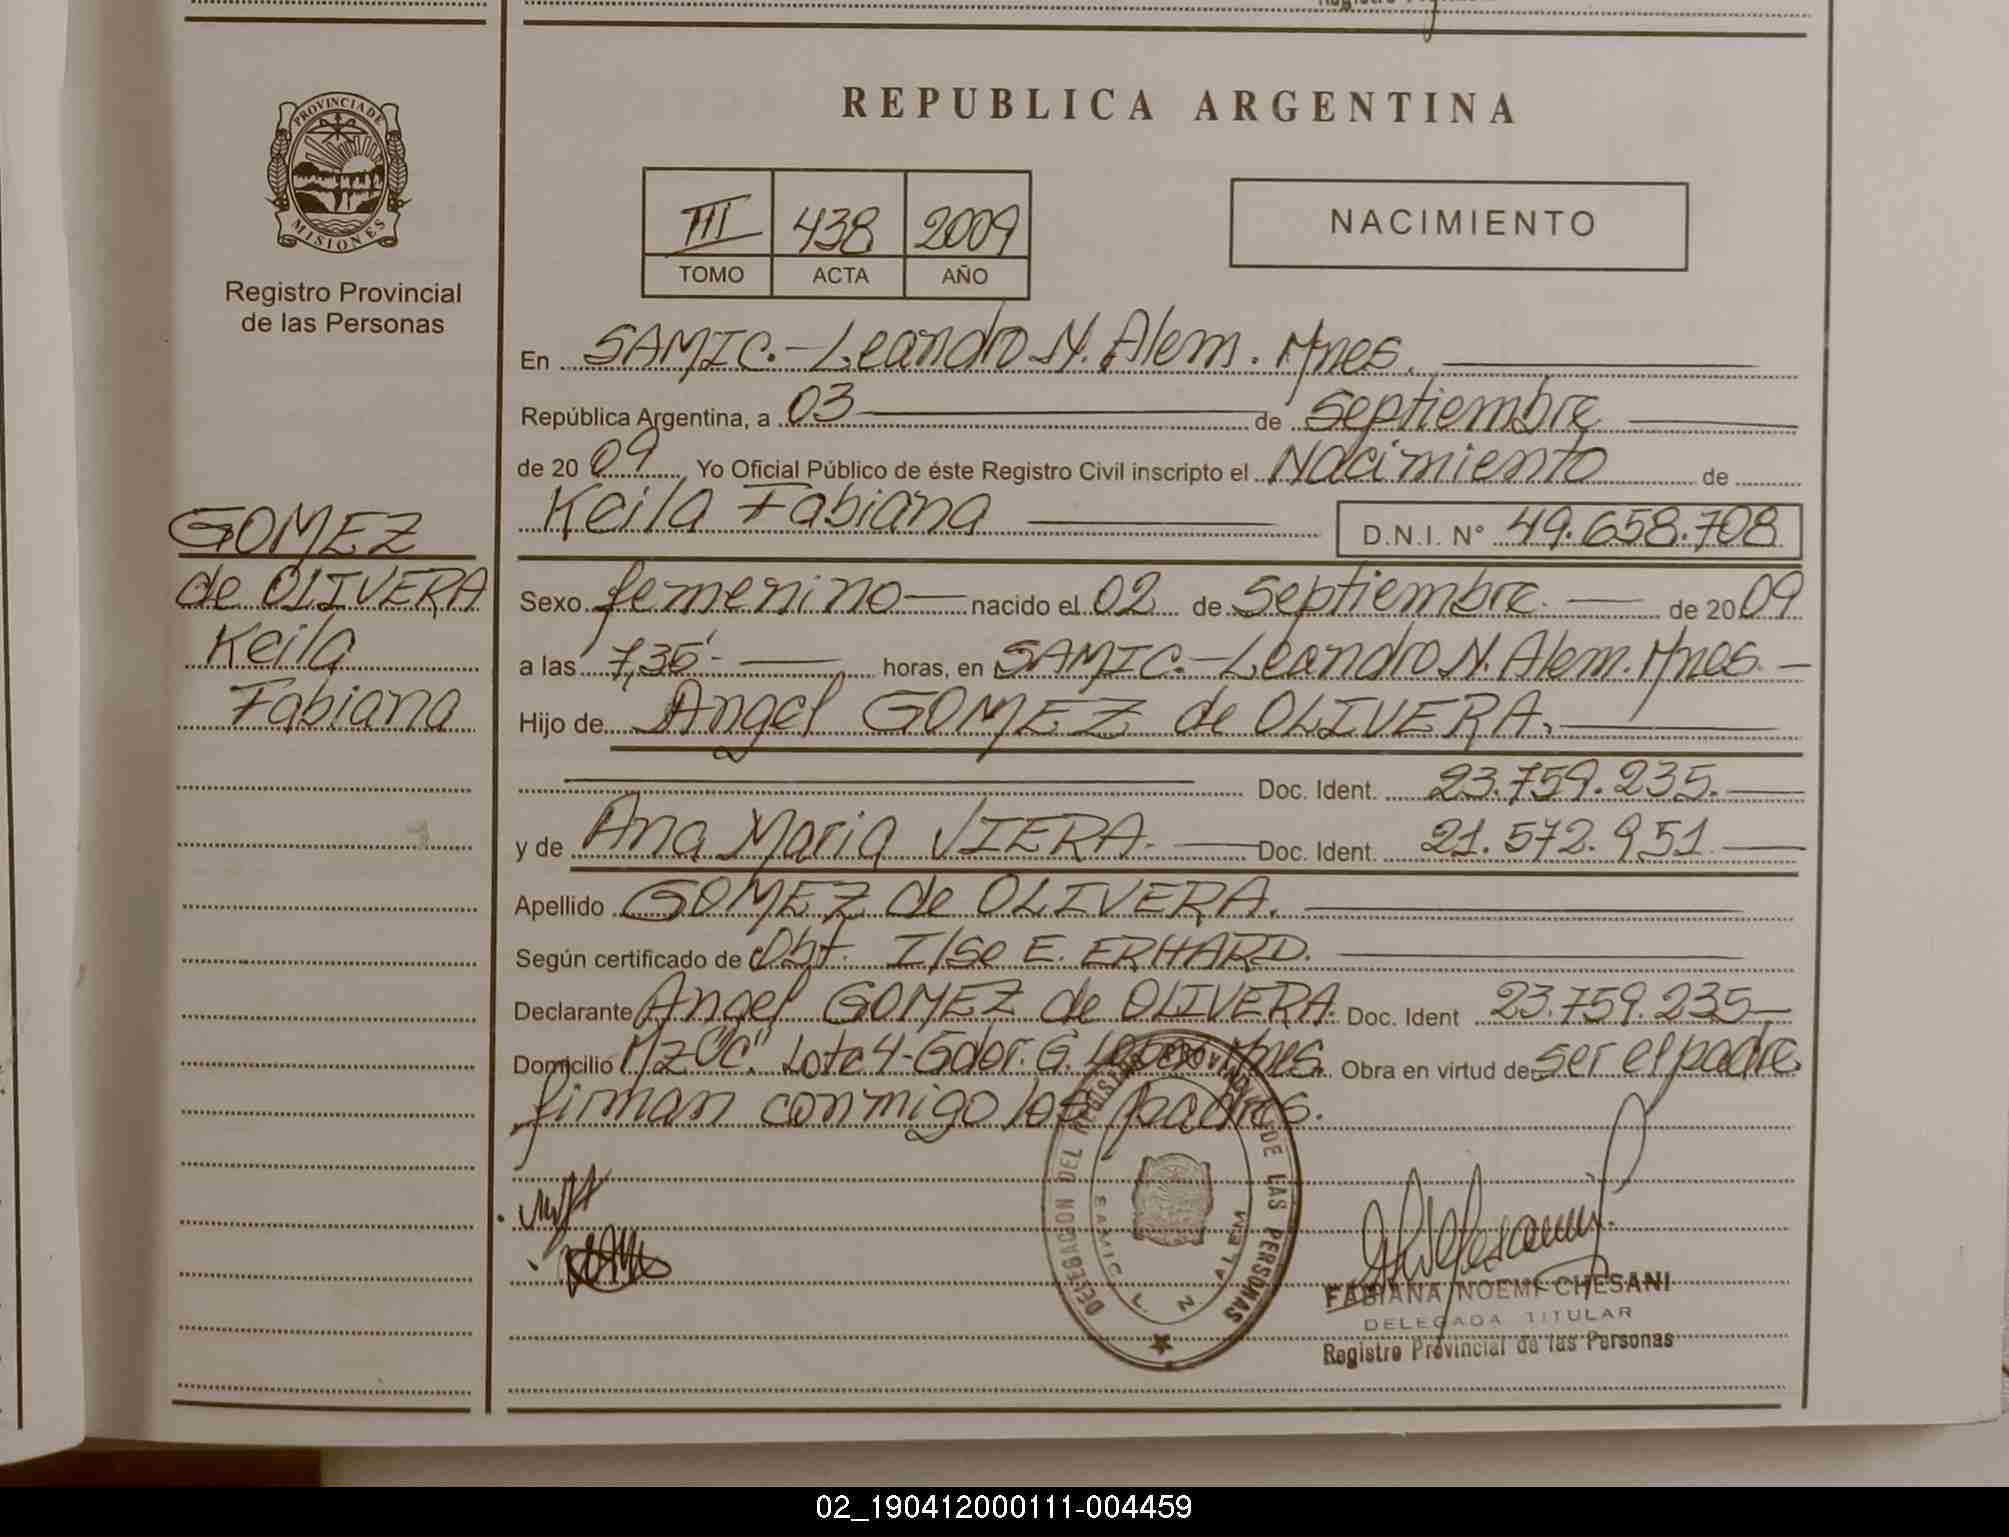 PROVINCIA DE
MISIONES
Registro Provincial
de las Personas
GOMEZ
de OLIVERA
Keila
Fabiana
REPUBLICA ARGENTINA
III 438 2009
TOMO ACTA AÑO
NACIMIENTO
En SAMIC.-Leandro N. Alem. Mnes.
República Argentina, a 03 de Septiembre
de 20 09 Yo Oficial Público de éste Registro Civil inscripto el Nacimiento de
Keila Fabiana D.N.I. N° 49.658.708
Sexo femenino nacido el 02 de Septiembre. de 20 09
a las 7,35'- horas, en SAMIC.-Leandro N. Alem. Mnes.
Hijo de Angel GOMEZ de OLIVERA.
Doc. Ident. 23.759.235.
y de Ana Maria VIERA. Doc. Ident. 21.572.951
Apellido GOMEZ de OLIVERA.
Según certificado de Obt. Ilse E. ERHARD.
Declarante Angel GOMEZ de OLIVERA. Doc. Ident 23.759.235
Domicilio Mz "C". Lote 4-Gdor. G. Mnes. Obra en virtud de ser el padre.
firman conmigo los padres.
DELEGACION DEL REGISTRO PROVINCIAL DE LAS PERSONAS
SAMIC L. N. ALEM
FABIANA NOEMI CHESANI
DELEGADA TITULAR
Registro Provincial de las Personas
02_190412000111-004459